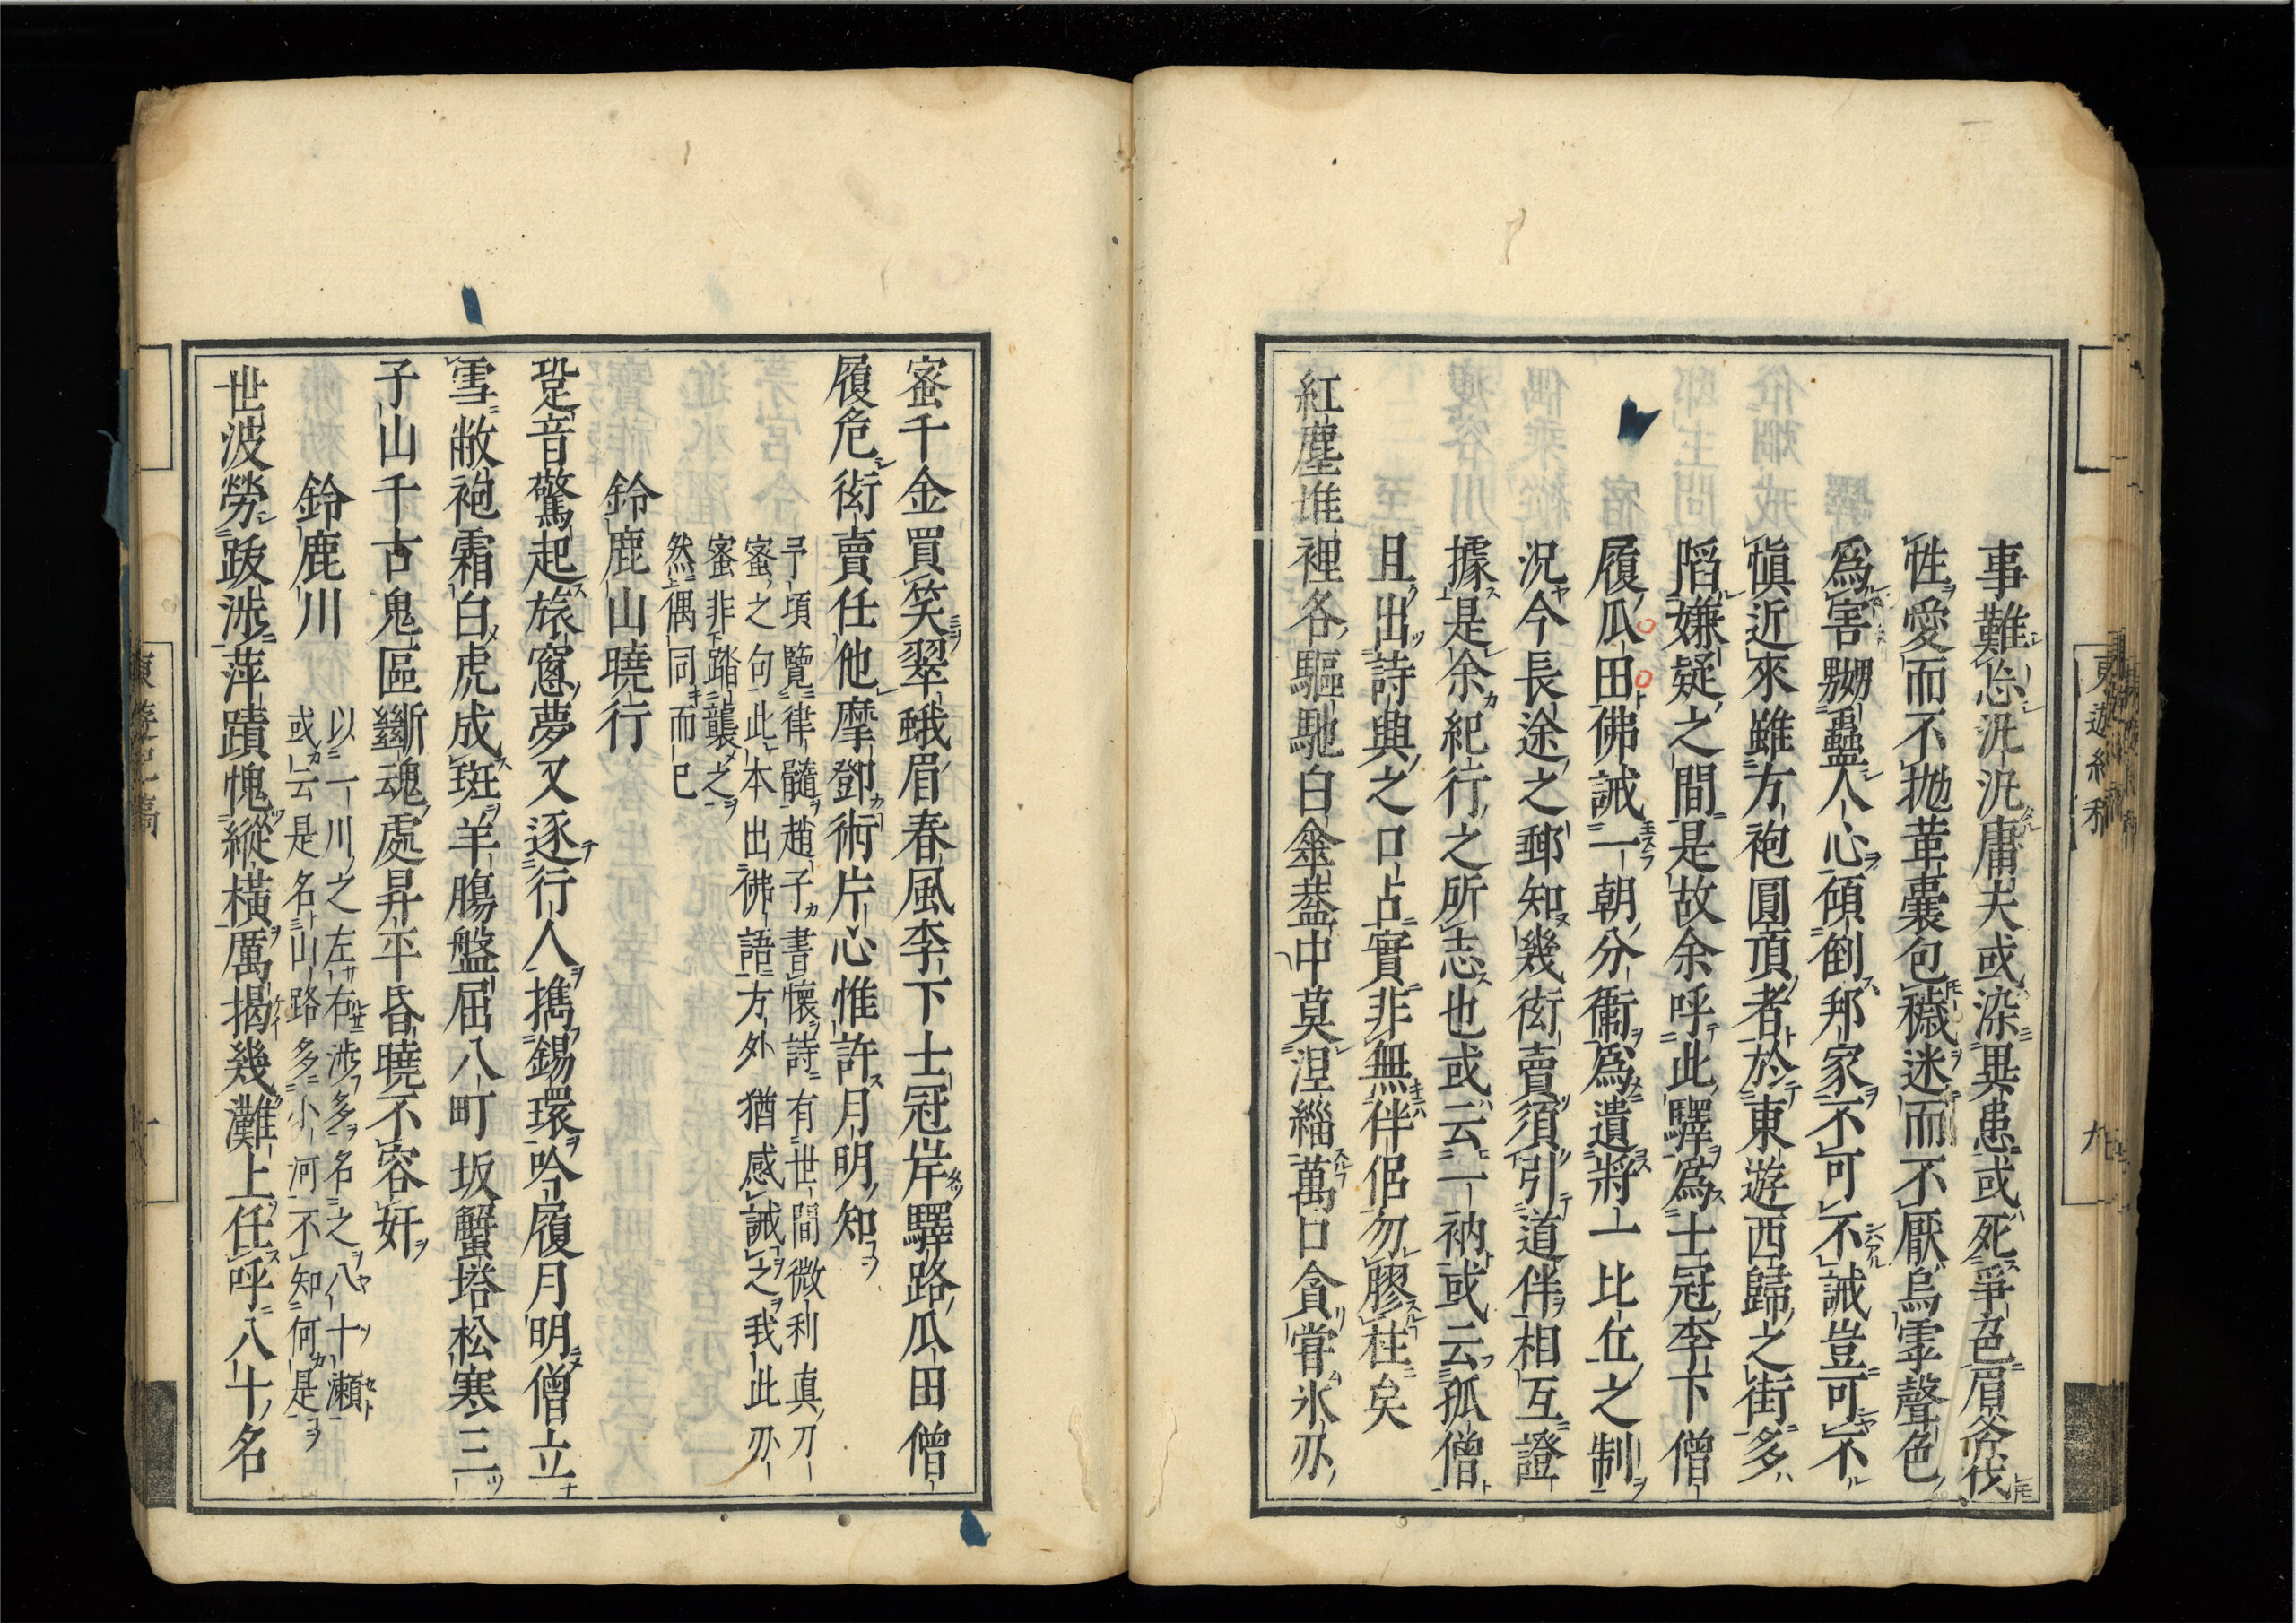 事難忘泥泥庸夫或染異患或死爭色眉斧伐
性愛而不抛革囊包穢迷而不厭烏雲聲色
爲害嬲蠱人心傾倒邦家不可不誡豈可不
愼近來雖方袍圓頂者於東遊西歸之街多
陷嫌疑之間是故余呼此驛爲士冠李下僧
履瓜田佛誡一朝分衞爲遺將一比丘之制
況今長途之郵知幾衒賣須引道伴相互證
據是余紀行之所志也或云一衲或云孤僧
且出詩典之口占實非無伴侶勿膠柱矣
紅塵堆裡各驅馳白傘蓋中莫涅緇萬口貪嘗氷刅
蜜千金買笑翠蛾眉春風李下士冠岸驛路瓜田僧
履危衒賣任他摩鄧術片心惟許月明知
予頃覽律髓趙子書懷詩有世間微利眞刀
蜜之句此本出佛語方外猶感誡之我此刅
蜜非踏襲之
然偶同而已
鈴鹿山曉行
跫音驚起旅窓夢又逐行人擕錫環吟履月明僧立
雪敝袍霜白虎成斑羊膓盤屈八町坂蟹塔松寒三
子山千古鬼區斷魂處昇平昏曉不容奸
鈴鹿川
以一川之左右涉多名之八十瀬
或云是名山路多小河不知何是
世波勞跋涉萍蹟愧縱橫厲揭幾灘上任呼八十名
東遊紀稿
九
東遊紀稿